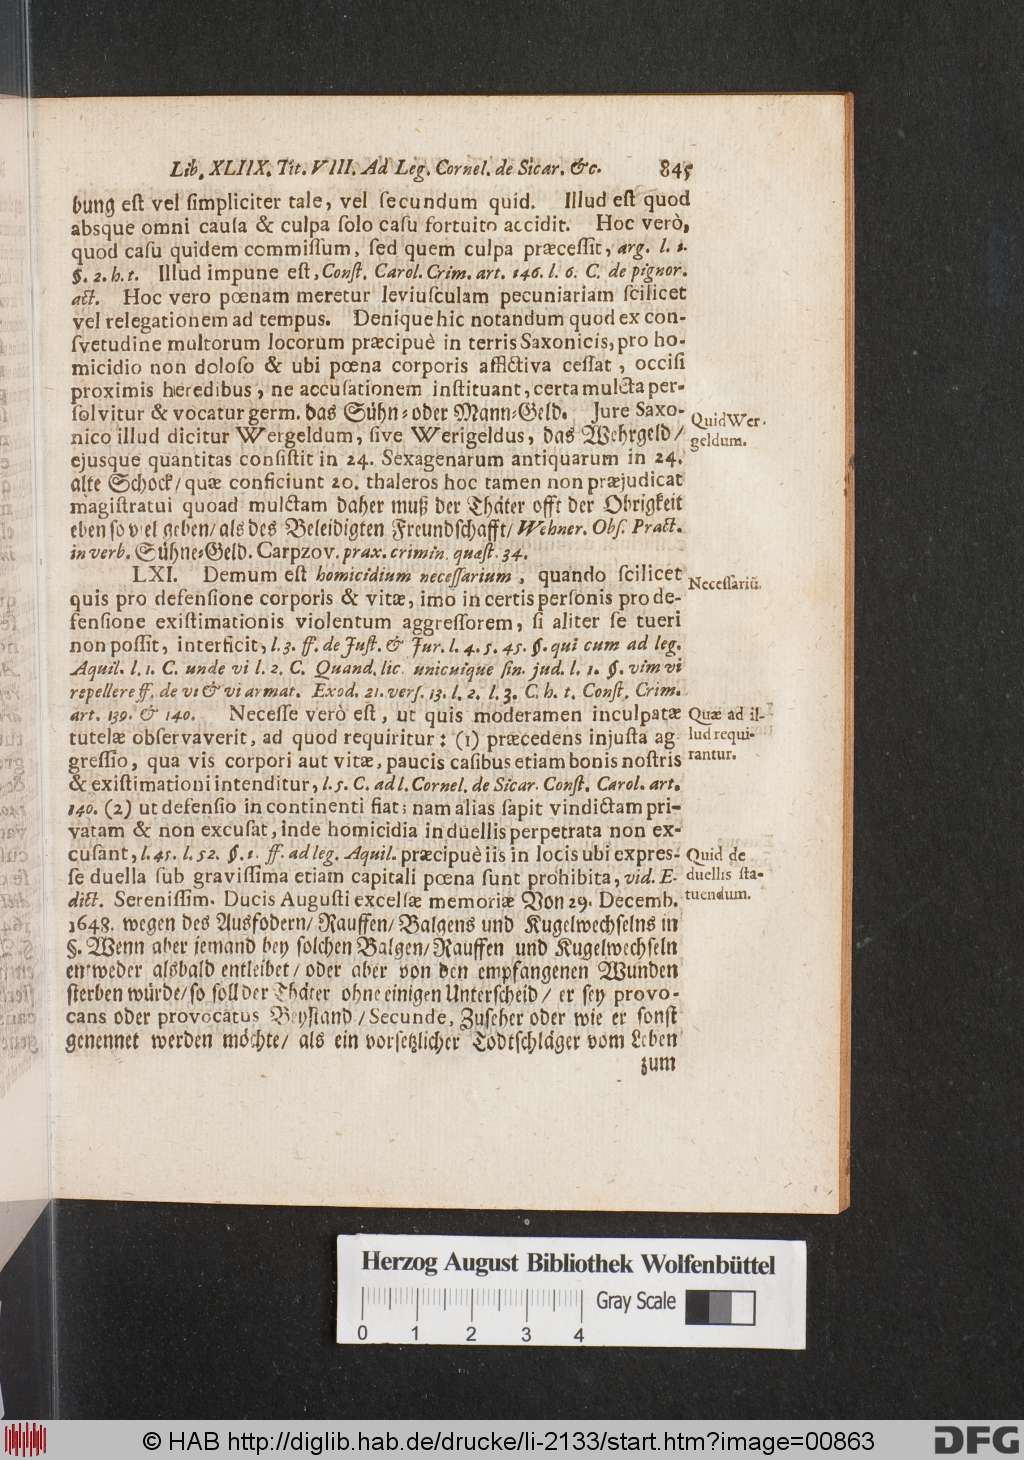 Lib. XLIIX. Tit. VIII. Ad Leg. Cornel. de Sicar. &c. 845
bung est vel simpliciter tale, vel secundum quid. Illud est quod
absque omni causa & culpa solo casu fortuito accidit. Hoc verò,
quod casu quidem commissum, sed quem culpa præcessit, arg. l. 1.
§. 2. h. t. Illud impune est, Const. Carol. Crim. art. 146. l. 6. C. de pignor.
act. Hoc vero pœnam meretur leviusculam pecuniariam scilicet
vel relegationem ad tempus. Denique hic notandum quod ex con-
svetudine multorum locorum præcipuè in terris Saxonicis, pro ho-
micidio non doloso & ubi pœna corporis afflictiva cessat, occisi
proximis heredibus, ne accusationem instituant, certa mulcta per-
solvitur & vocatur germ. das Sühn- oder Mann-Geld. Jure Saxo-
nico illud dicitur Wergeldum, sive Werigeldus, das Wehrgeld/
Quid Wer-
geldum.
ejusque quantitas consistit in 24. Sexagenarum antiquarum in 24.
alte Schock/ quæ conficiunt 20. thaleros hoc tamen non præjudicat
magistratui quoad mulctam daher muß der Thäter offt der Obrigkeit
eben so viel geben/ als des Beleidigten Freundschafft/ Wehner. Obs. Pract.
in verb. Sühne-Geld. Carpzov. prax. crimin. quæst. 34.
LXI. Demum est homicidium necessarium, quando scilicet
Necessariũ.
quis pro defensione corporis & vitæ, imo in certis personis pro de-
fensione existimationis violentum aggressorem, si aliter se tueri
non possit, interficit, l. 3. ff. de Just. & Jur. l. 4. 5. 45. §. qui cum ad leg.
Aquil. l. 1. C. unde vi l. 2. C. Quand. lic. unicuique sin. jud. l. 1. §. vim vi
repellere ff. de vi & vi armat. Exod. 21. vers. 13. l. 2. l. 3. C. h. t. Const. Crim.
art. 139. & 140. Necesse verò est, ut quis moderamen inculpatæ
Quæ ad il-
lud requi-
rantur.
tutelæ observaverit, ad quod requiritur: (1) præcedens injusta ag
gressio, qua vis corpori aut vitæ, paucis casibus etiam bonis nostris
& existimationi intenditur, l. 5. C. ad l. Cornel. de Sicar. Const. Carol. art.
140. (2) ut defensio in continenti fiat; nam alias sapit vindictam pri-
vatam & non excusat, inde homicidia in duellis perpetrata non ex-
cusant, l. 45. l. 52. §. 1. ff. ad leg. Aquil. præcipuè iis in locis ubi expres-
Quid de
duellis sta-
tuendum.
se duella sub gravissima etiam capitali pœna sunt prohibita, vid. E-
dict. Serenissim. Ducis Augusti excelsæ memoriæ Von 29. Decemb.
1648. wegen des Ausfodern/ Rauffen/ Balgens und Kugelwechselns in
§. Wenn aber jemand bey solchen Balgen/ Rauffen und Kugelwechseln
entweder alsbald entleibet/ oder aber von den empfangenen Wunden
sterben würde/ so soll der Thäter ohne einigen Unterscheid/ er sey provo-
cans oder provocatus Beystand/ Secunde, Zuseher oder wie er sonst
genennet werden möchte/ als ein vorsetzlicher Todtschläger vom Leben
zum
Herzog August Bibliothek Wolfenbüttel
0 1 2 3 4 Gray Scale
© HAB http://diglib.hab.de/drucke/li-2133/start.htm?image=00863
DFG